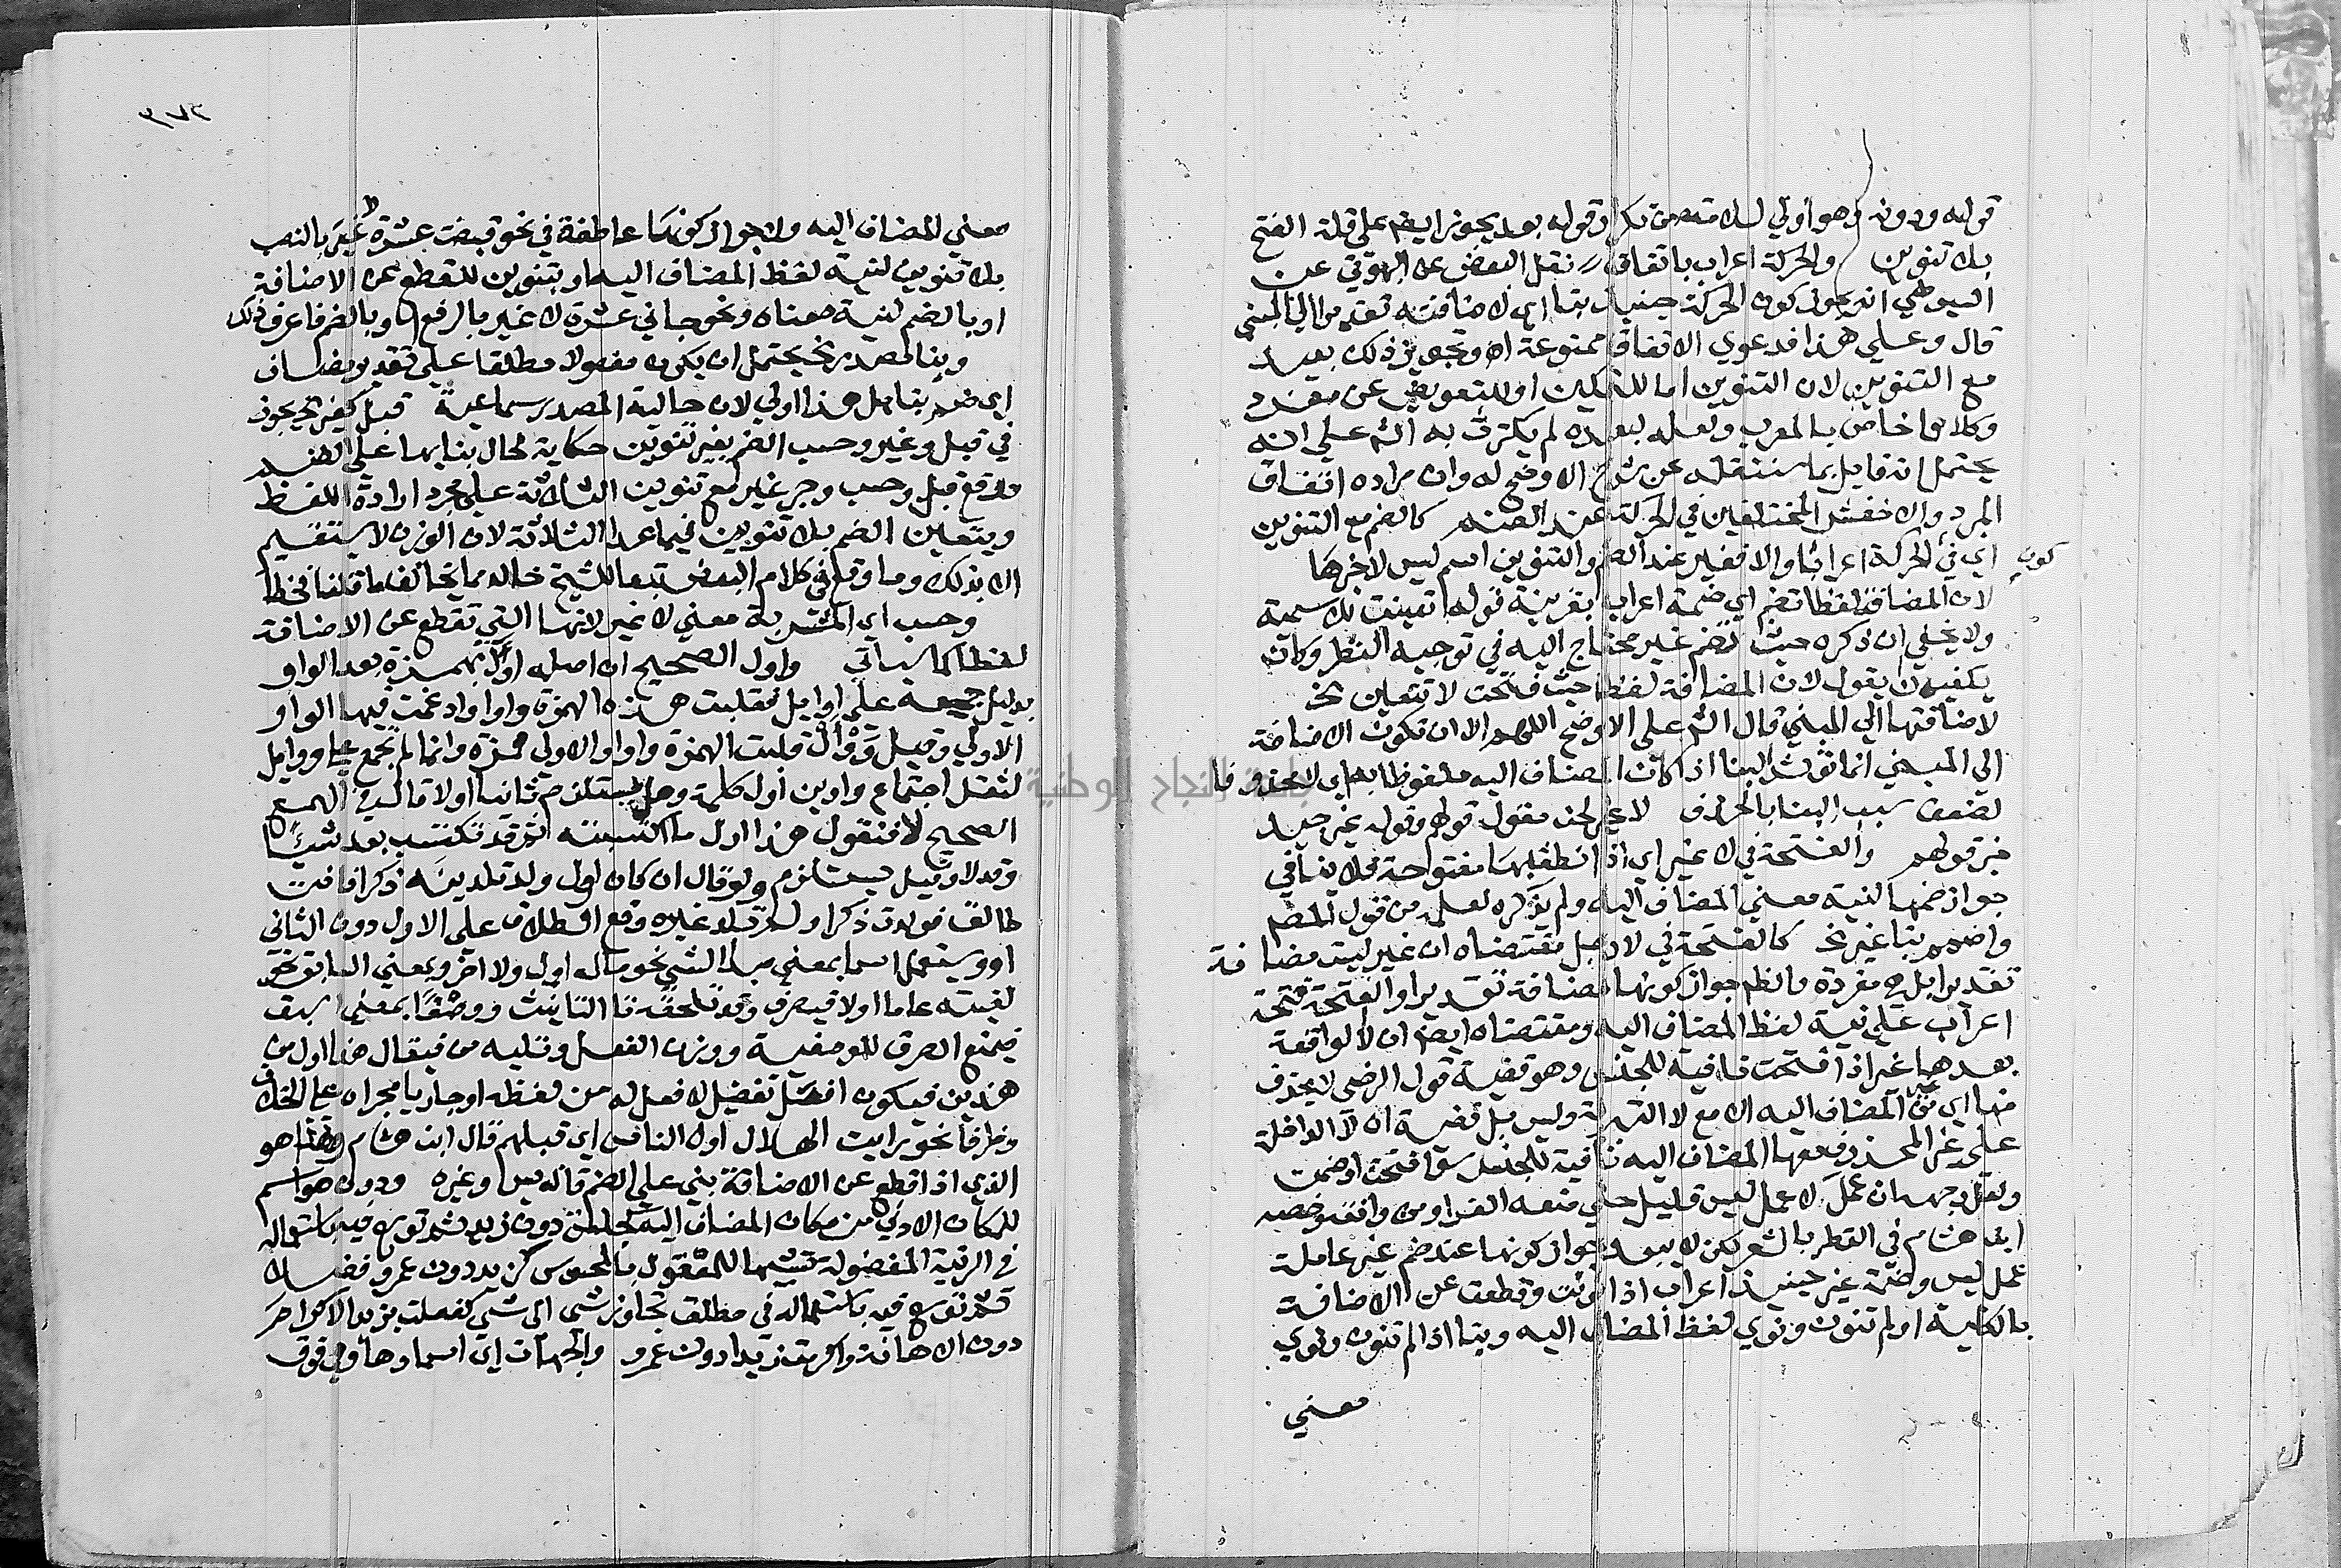 قوله ودونه وهو أولى لسلامته من تكرار قوله بعد يجوز ايضا على قلة الفتح
بلا تنوين والحركة اعراب باتفاق نقل البعض عن البهوتي عن
السيوطي انه جوز كون الحركة حينئذ بنا اي لاضافته تقديرا الى المبني
قال وعلى هذا فدعوى الاتفاق ممنوعة اه وتجويز ذلك بعيد
مع التنوين لان التنوين اما للتمكين او للتعويض عن مفرد
وكلاهما خاص بالمعرب ولعله لبعده لم يكترث به الش على انه
يحتمل انه قابل بما سننقله عن شرح الاوضح له وان مراده اتفاق
المبرد والاخفش المختلفين في الحركة عند الضم كالضم مع التنوين
اي في كون الحركة اعرابا والا فغير عند الضم والتنوين اسم ليس لا خبرها
لان المضاف لفظا تضم اي ضمة اعراب بقرينة قوله تعينت
ولا يخفى ان ذكره حيث تضم غير محتاج اليه في توجيه النظر وكان
يكفيه ان يقول لان المضافة لفظا حيث فتحت لا تتعين الخ
لاضافتها الى المبني قال الش على الاوضح اللهم الا ان تكون الاضافة
الى المبني انما تؤثر البنا اذا كان المضاف اليه ملفوظا به اي لا محذوفا
لضعف سبب البنا بالحذف لا غير لحن مقول قولهم وقوله غير جيد
خبر قولهم والفتحة في لا غير اي اذا نطق بها مفتوحة فلا ينافي
جواز ضمها لنية معنى المضاف اليه ولم يذكره لعلمه من قول المصم
واضمم بنا غير الخ كالفتحة في لا رجل مقتضاه ان غير ليست مضافة
تقديرا بل مفردة والظم جواز كونها مضافة تقديرا والفتحة فتحة
اعراب على نية لفظ المضاف اليه ومقتضاه ايضا ان لا الواقعة
بعدها غير اذا فتحت نافية للجنس وهو قضية قول الرضي لا يحذف
منها اي من غير المضاف اليه الا مع لا التبرئة وليس بل قضية ان لا الداخلة
على غير المحذوف معها المضاف اليه نافية للجنس سوا فتحت او ضمت
ولعل وجهه ان عمل لا عمل ليس قليل حتى منعه الفرا ومن وافقه وخصه
ابن هشام في القطر بالشعر لكن لا يبعد جواز كونها عند ضم غير عاملة
عمل ليس وضمة غير حينئذ اعراب اذا نونت وقطعت عن الاضافة
بالكلية او لم تنون ونوي لفظ المضاف اليه وبنا اذا لم تنون ونوي
معنى
٣٧٣
معنى المضاف اليه ولا جواز كونها عاطفة في نحو قبضت عشرة لا غير بالنصب
بلا تنوين لنية لفظ المضاف اليه او بتنوين للقطع عن الاضافة
او بالضم لنية معناه ونحو جاني عشرة لا غير بالرفع او بالضم فاعرف ذلك
وبنا المصدر الخ يحتمل ان يكون مفعولا مطلقا على تقدير مضاف
اي ضم بنا بل هذا اولى لان حالية المصدر سماعية قبل كغير الخ يجوز
في قبل وغير وحسب الضم بغير تنوين حكاية لحال بنايها على الضم
ورفع قبل وحسب وجر غير مع تنوين الثلاثة على مجرد ارادة اللفظ
ويتعين الضم بلا تنوين فيما عدا الثلاثة لان الوزن لا يستقيم
الا بذلك وما وقع في كلام البعض تبعا للشيخ خالد مما يخالف ما قلنا فخطا
وحسب اي المشربة معنى لا غير لانها التي تقطع عن الاضافة
لفظا كما سياتي واول الصحيح ان اصله اوأل بهمزة بعد الواو
بدليل جمعه على اوايل فقلبت هذه الهمزة واوا وادغمت فيها الواو
الاولى وقيل ووأل قلبت الهمزة واوا والاولى همزة وانما لم يجمع على ووايل
لثقل اجتماع واوين اول كلمة وهل يستلزم ثانيا او لا قال في الهمع
الصحيح لا فتقول هذا اول ما اكتسبته ثم قد تكتسب بعده شيئا
وقد لا وقيل يستلزم ولو قال ان كان اول ولد تلدينه ذكرا فانت
طالق فولدت ذكرا ولم تلد غيره وقع الطلاق على الاول دون الثاني
اه ويستعمل اسما بمعنى مبدا الشي نحو ماله اول ولا اخر وبمعنى السابق نحو
لقيته عاما اولا فيصرف وقد تلحقه تا التانيث ووصفا بمعنى اسبق
فيمنع الصرف للوصفية ووزن الفعل وتليه من فيقال هذا اول من
هذين فيكون افعل تفضيل لا فعل له من لفظه او جاريا مجراه على الخلاف
وظرفا نحو رايت الهلال اول الناس اي قبلهم قال ابن هشام وهذا هو
الذي اذا قطع عن الاضافة بني على الضم قاله يس وغيره ودون هو اسم
للمكان الادنى من مكان المضاف اليه كجلست دون زيد ثم توسع فيه باستعماله
في الرتبة المفضولة تشبيها للمعقول بالمحسوس كزيد دون عمرو فضلا
ثم توسع فيه باستعماله في مطلق تجاوز شي الى شي كفعلت بزيد الاكرام
دون الاهانة واكرمت زيدا دون عمرو والجهات اي اسماوها وهي فوق